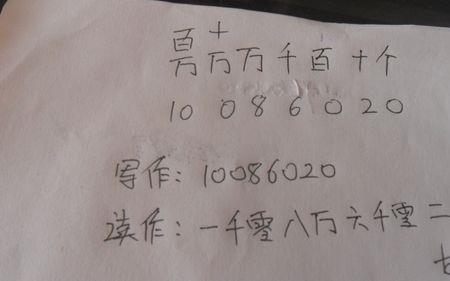 百万 十万 万 千 百 十 个
10 0 8 6 0 2 0
写作：10086020
读作：一千零八万六千零二